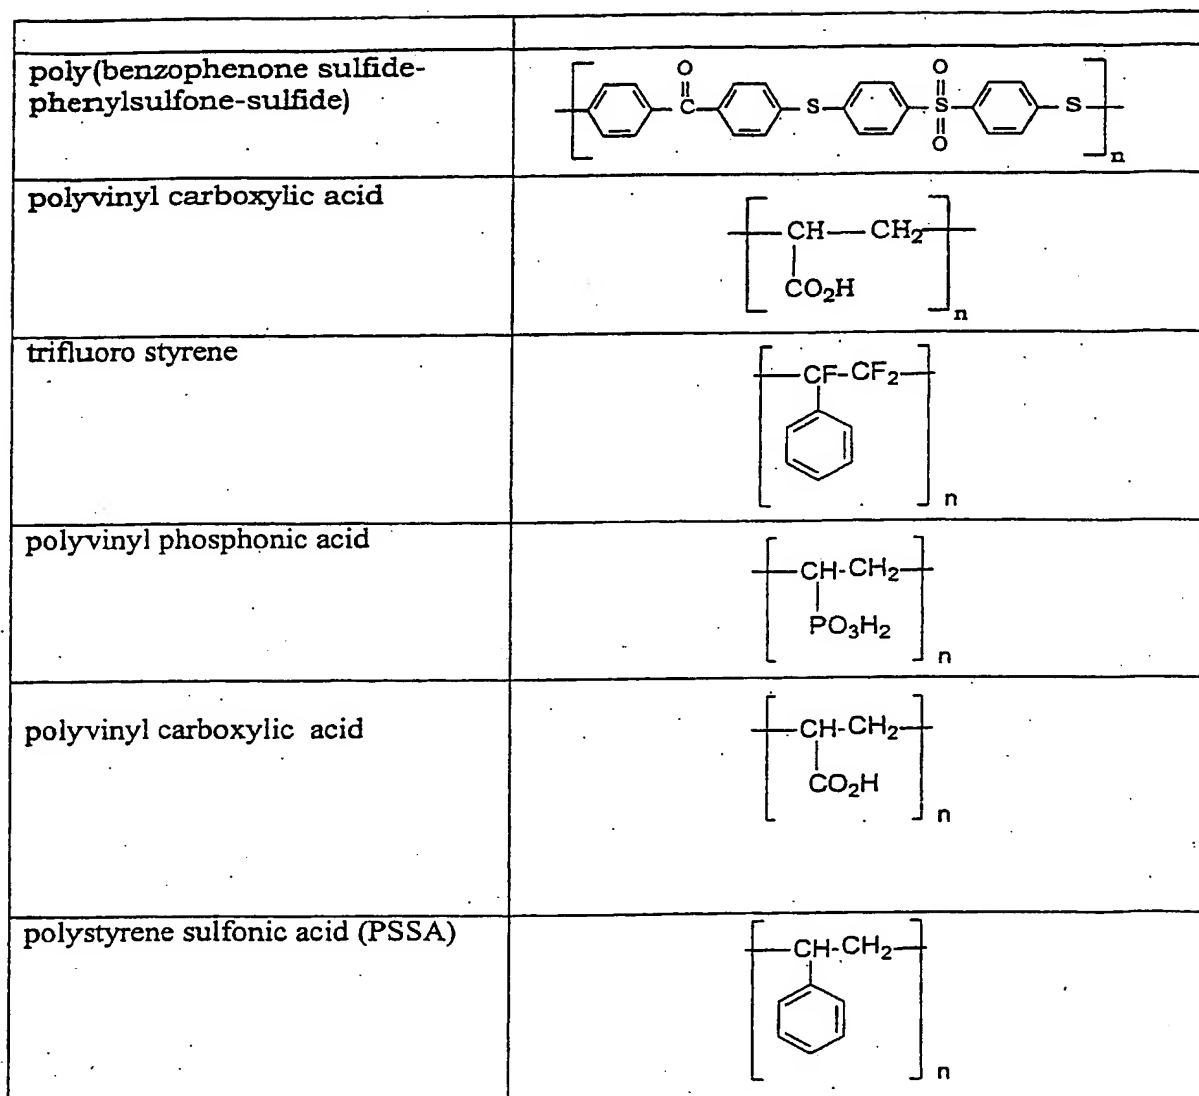 poly(benzophenone sulfide-
phenylsulfone-sulfide)
O O
C S S S
O
n
polyvinyl carboxylic acid
CH CH₂
CO₂H
n
trifluoro styrene
CF-CF₂
n
polyvinyl phosphonic acid
CH-CH₂
PO₃H₂
n
polyvinyl carboxylic acid
CH-CH₂
CO₂H
n
polystyrene sulfonic acid (PSSA)
CH-CH₂
n